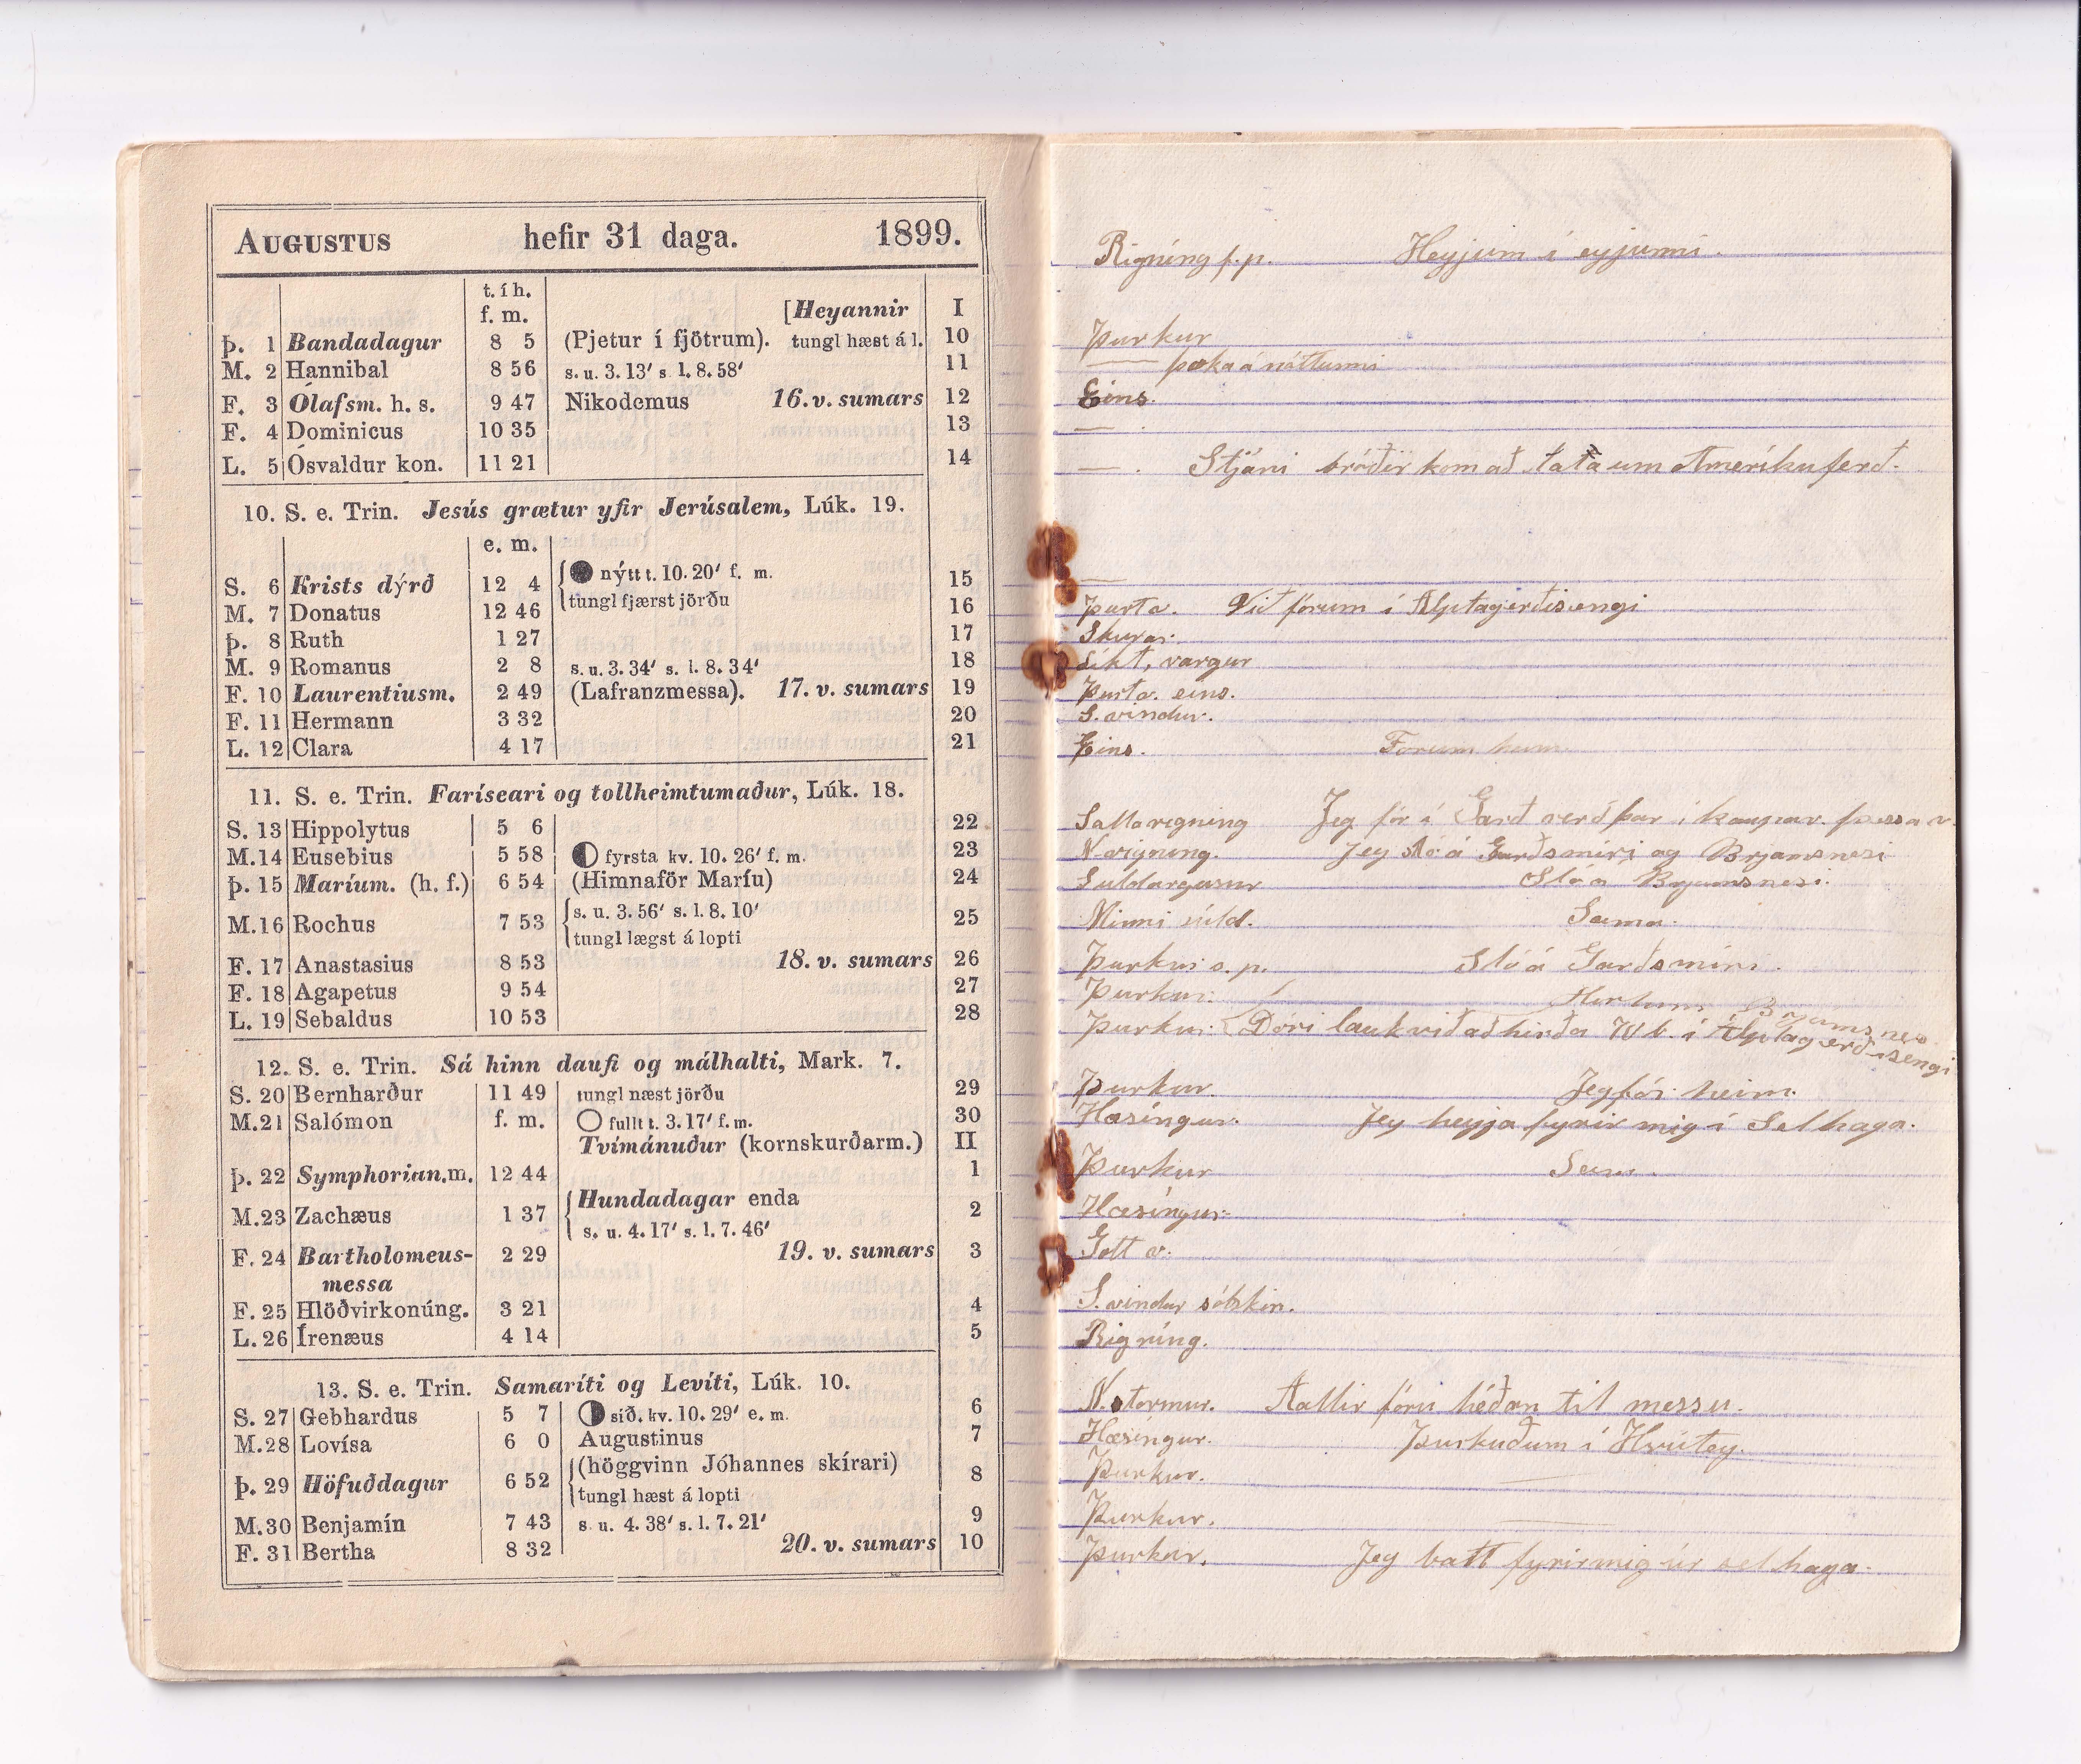 AUGUSTUS hefir 31 daga. 1899.
t. í h.
f. m. [Heyannir I
Þ. 1 Bandadagur 8 5 (Pjetur í fjötrum). tungl hæst á l. 10
M. 2 Hannibal 8 56 s. u. 3. 13' s. l. 8. 58' 11
F. 3 Ólafsm. h. s. 9 47 Nikodemus 16. v. sumars 12
F. 4 Dominicus 10 35 13
L. 5 Ósvaldur kon. 11 21 14
10. S. e. Trin. Jesús grætur yfir Jerúsalem, Lúk. 19.
e. m.
S. 6 Krists dýrð 12 4 nýtt t. 10. 20' f. m. 15
tungl fjærst jörðu
M. 7 Donatus 12 46 16
Þ. 8 Ruth 1 27 17
M. 9 Romanus 2 8 s. u. 3. 34' s. l. 8. 34' 18
F. 10 Laurentiusm. 2 49 (Lafranzmessa). 17. v. sumars 19
F. 11 Hermann 3 32 20
L. 12 Clara 4 17 21
11. S. e. Trin. Faríseari og tollheimtumaður, Lúk. 18.
S. 13 Hippolytus 5 6 22
M. 14 Eusebius 5 58 fyrsta kv. 10. 26' f. m. 23
Þ. 15 Maríum. (h. f.) 6 54 (Himnaför Maríu) 24
M. 16 Rochus 7 53 s. u. 3. 56' s. l. 8. 10' 25
tungl lægst á lopti
F. 17 Anastasius 8 53 18. v. sumars 26
F. 18 Agapetus 9 54 27
L. 19 Sebaldus 10 53 28
12. S. e. Trin. Sá hinn daufi og málhalti, Mark. 7.
S. 20 Bernharður 11 49 tungl næst jörðu 29
M. 21 Salómon f. m. fullt t. 3. 17' f. m. 30
Tvímánuður (kornskurðarm.) II
Þ. 22 Symphorian.m. 12 44 1
M. 23 Zachæus 1 37 Hundadagar enda 2
s. u. 4. 17' s. l. 7. 46'
F. 24 Bartholomeus- 2 29 19. v. sumars 3
messa
F. 25 Hlöðvirkonúng. 3 21 4
L. 26 Írenæus 4 14 5
13. S. e. Trin. Samaríti og Levíti, Lúk. 10.
S. 27 Gebhardus 5 7 síð. kv. 10. 29' e. m. 6
M. 28 Lovísa 6 0 Augustinus 7
Þ. 29 Höfuðdagur 6 52 (höggvinn Jóhannes skírari) 8
tungl hæst á lopti
M. 30 Benjamín 7 43 s. u. 4. 38' s. l. 7. 21' 9
F. 31 Bertha 8 32 20. v. sumars 10
Rigníng f.p. Heyjum í eyjunni.
Þurkur
— þoka á nóttunni
Eins.
— .
— . Stjáni bróðir kom að tala um Ameríkuferð.
—
Þurta. Við fórum í Alptagerðisengi
Skurar.
Líkt, vargur
Þurta. eins.
S. vindur.
Eins. Forum heim
Sallarigning Jeg fór í Garð verð þar í kaupav. þessa v.
N. rigning. Jeg sló á Garðsmíri og Brjamsnesi
Suldargusur Sló á Brjamsnesi.
Minni súld. Sama.
Þurkur s. p. Sló á Garðsmíri.
Þurkur. Brjamsnes.
Þurkur. Dóri lauk við að hirða í Alptagerðisengi
Þurkur. Jeg fór heim.
Hæsíngur. Jeg heyja fyrir mig í Selhaga.
Þurkur Sama.
Hæsíngur.
Gott v.
S. vindur sólskin.
Rigníng.
N. stormur. Aallir fóru héðan til messu.
Hæsíngur. Þurkuðum í Hrútey.
Þurkur.
Þurkur. —
Þurkur. Jeg batt fyrir mig úr selhaga.